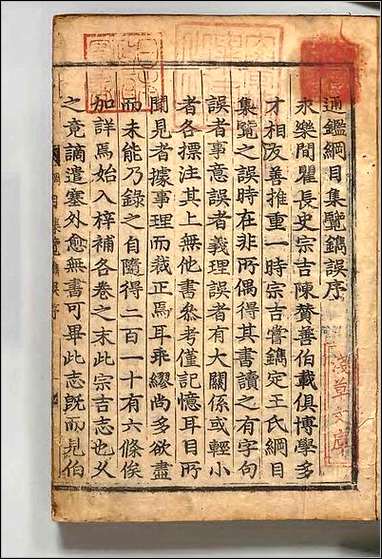 通鑑綱目集覽鐫誤序
永樂間瞿長史宗吉陳賛善伯載俱博學多
才相友善推重一時宗吉嘗鐫定王氏綱目
集覽之誤時在非所偶得其書讀之有字句
誤者事意誤者義理誤者有大關係或輕小
者各摽注其上無他書參考僅記憶耳目所
聞見者據事理而裁正焉耳乖繆尚多欲盡
而未能乃錄之自隨得二百一十有六條俟
加詳焉始入梓補各卷之末此宗吉志也乆
之竟謫遣塞外愈無書可畢此志旣而見伯
淺草文庫